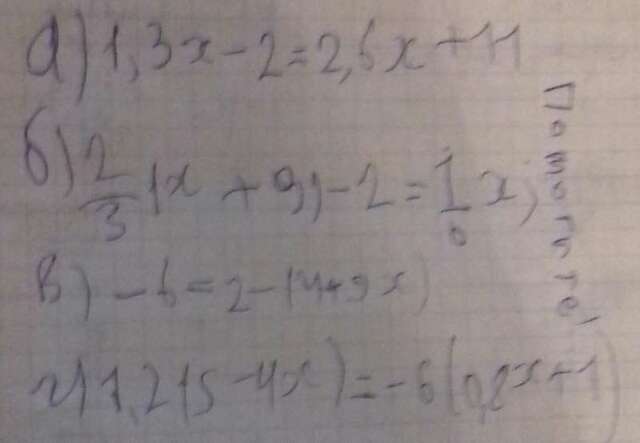 а) 1,3x - 2 = 2,6x + 11
б) 2/3 (x + 9) - 2 = 1/6 x;
в) - 6 = 2 - (4 + 9x)
г) 1,2(5 - 4x) = - 6(0,8x + 1)
Помогите!